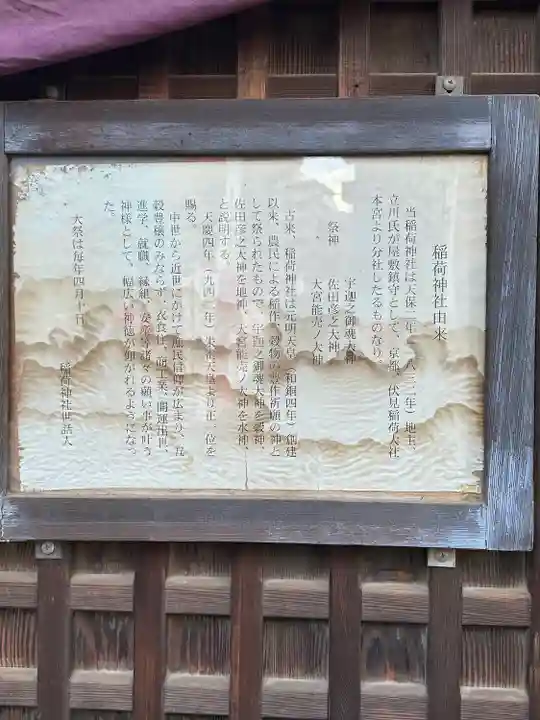 稲荷神社由来
当稲荷神社は天保二年(一八三一年)地主、
立川氏が屋敷鎮守として、京都、伏見稲荷大社
本宮より分社したるものなり。
祭神
宇迦之御魂大神
佐田彦之大神
大宮能売ノ大神
古来、稲荷神社は元明天皇(和銅四年)創建
以来、農民による稲作、穀物の豊作祈願の神と
して祭られたもので、宇迦之御魂大神を穀神、
佐田彦之大神を地神、大宮能売ノ大神を水神、
と説明する。
天慶四年(九四一年)朱雀天皇より正一位を
賜る。
中世から近世にかけて庶民信仰が広まり、五
穀豊穣のみならず、衣食住、商工業、開運出世、
進学、就職、縁組、安産等諸々の願い事が叶う
神様として、幅広い神徳が仰がれるようになっ
た。
大祭は毎年四月十日
稲荷神社世話人